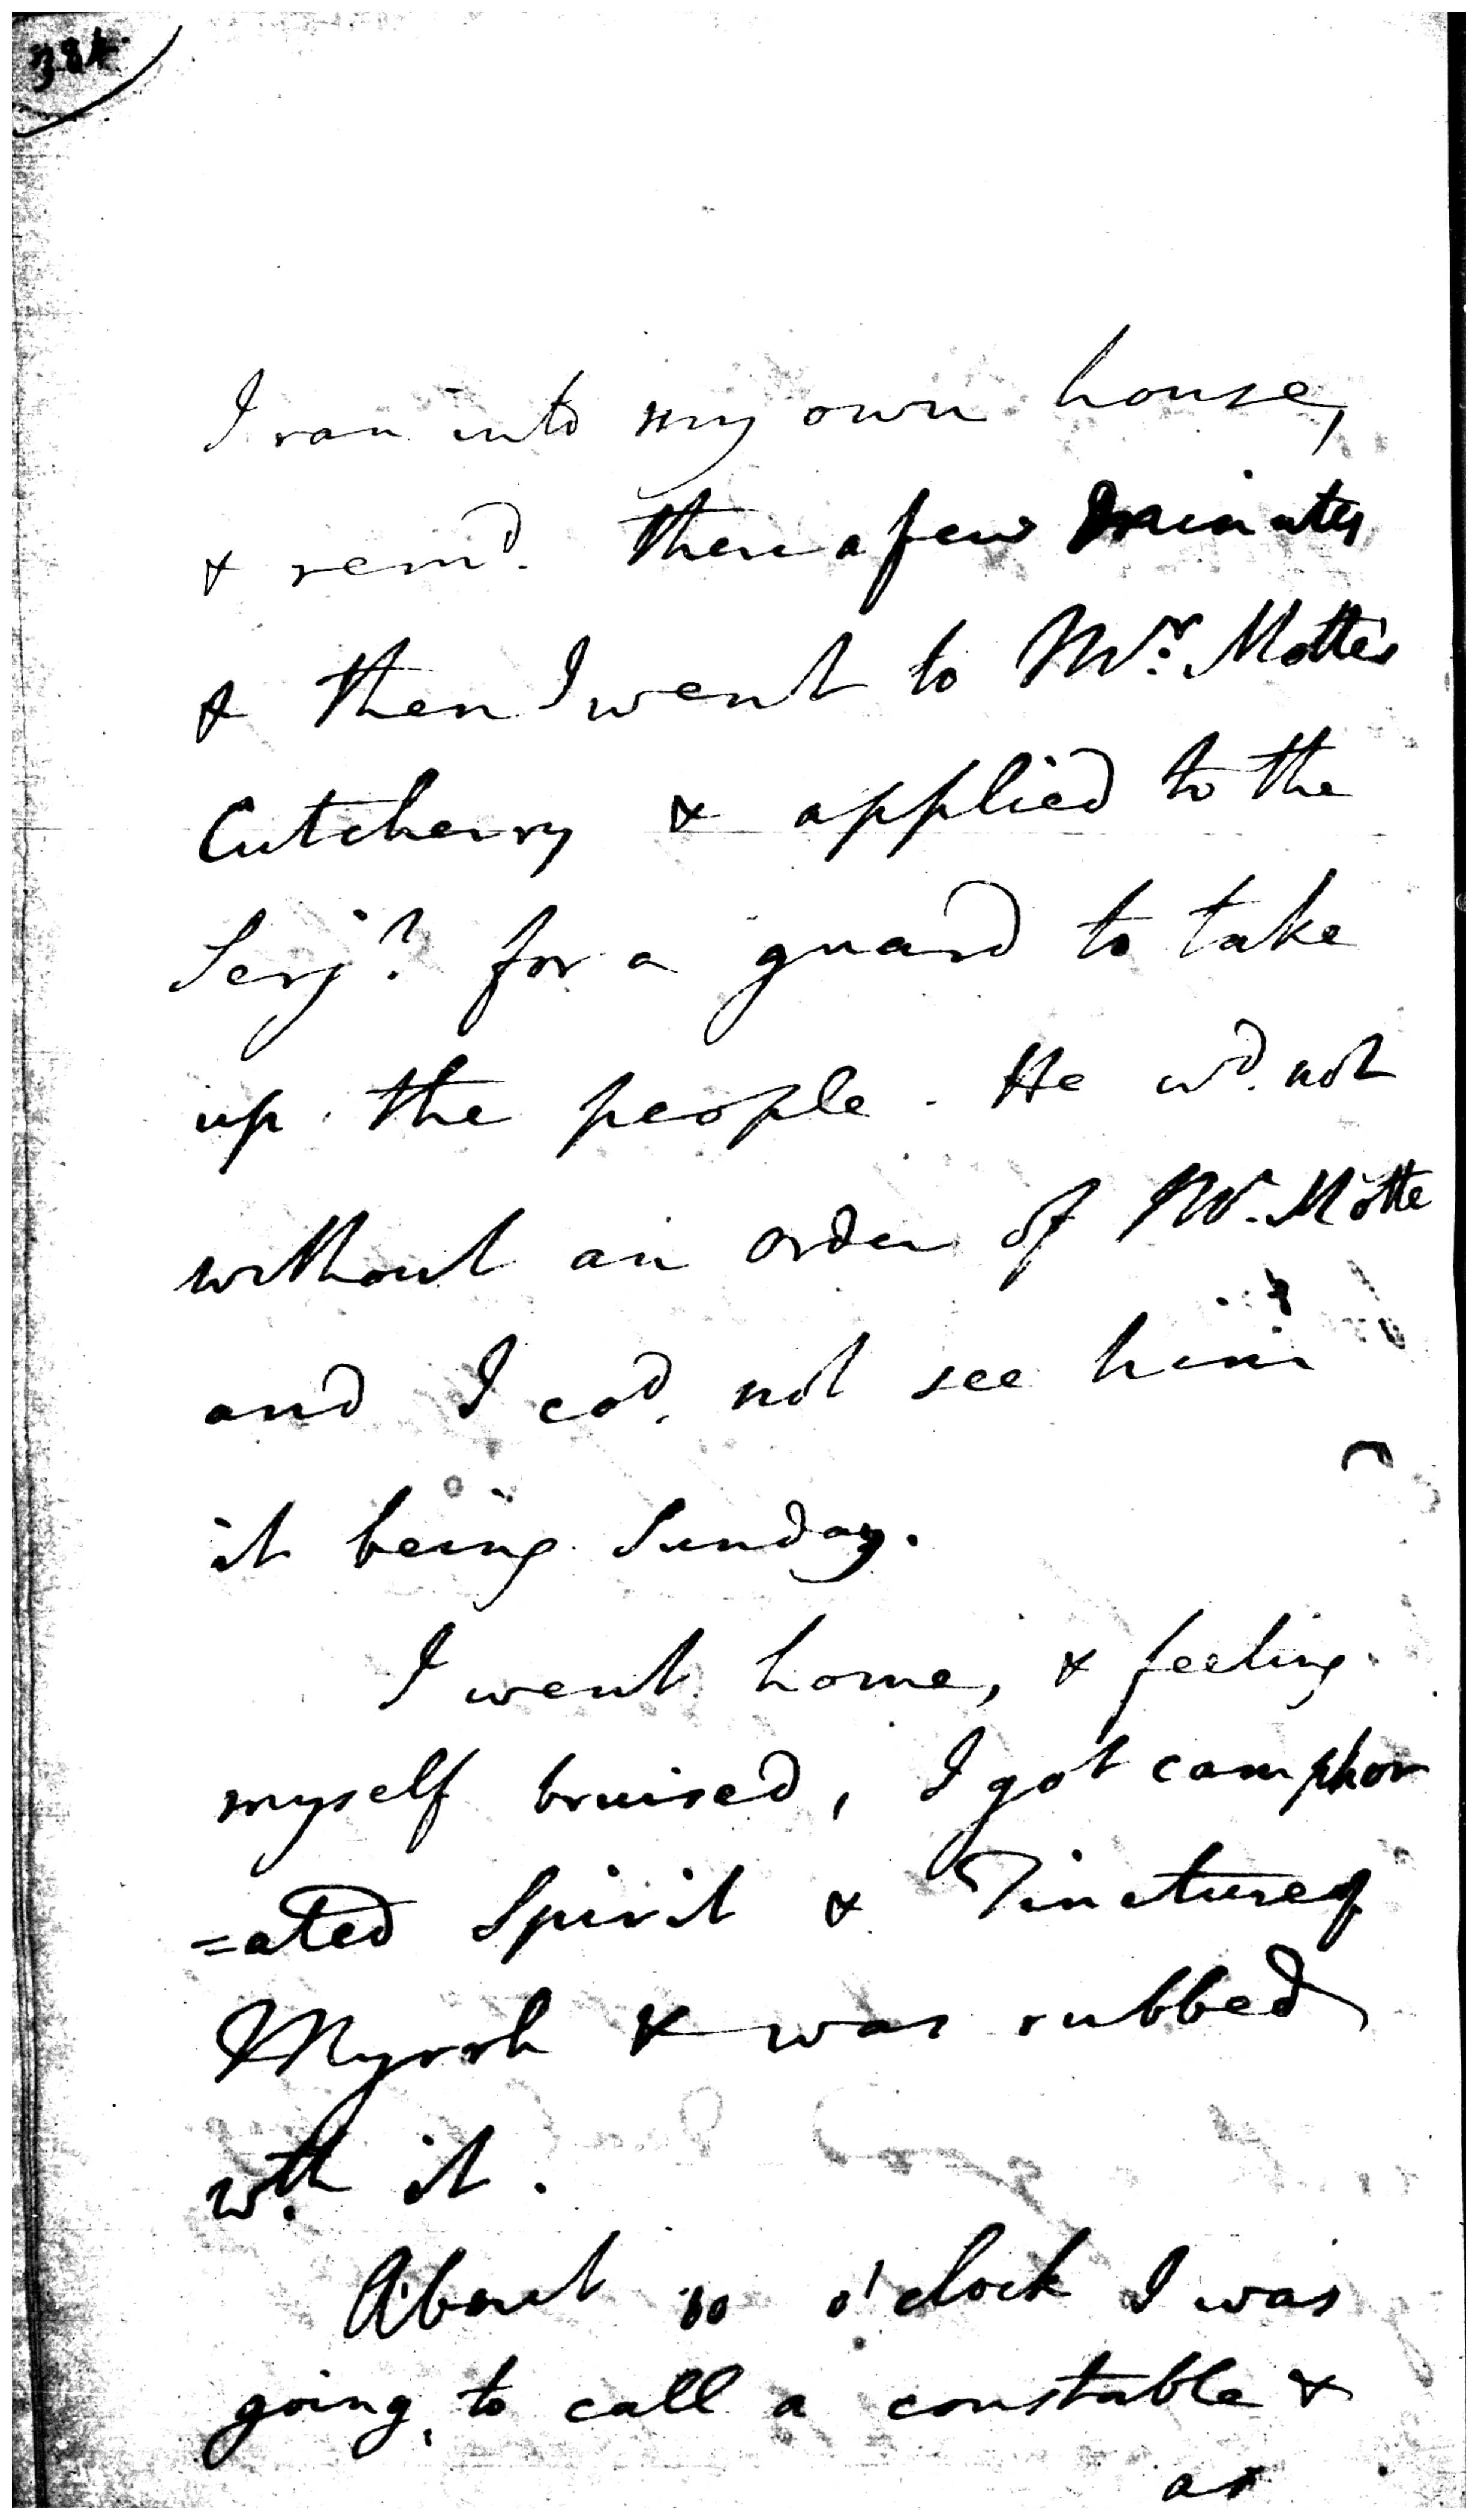 384
I ran into my own house,
& remd. there a few minutes
& then I went to Mr. Motte's
Cutcherry & applied to the
Serjt. for a guard to take
up the people. He wd. not
without an order of Mr. Motte
and I cod. not see him
it being Sunday.
I went home, & feeling
myself bruised, I got camphor
=ated Spirit & Tincture of
Myrrh & was rubbed
wth. it.
About 10 o'clock I was
going to call a constable &
as